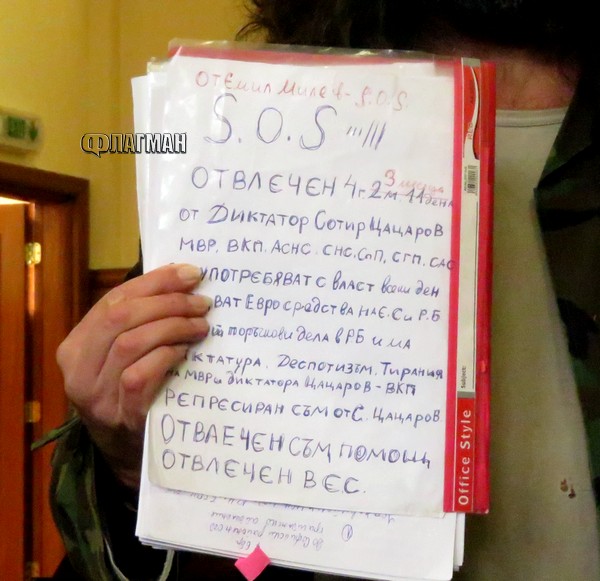 ФЛАГМАН
ОТ Емил Милев - S.O.S.
S.O.S !!!!!
ОТВЛЕЧЕН 4г. 2м 11 дена
3 месеца
от Диктатор Сотир Цацаров
МВР. ВКП. АСНС. СНС. СпП. СГП. САС
УПОТРЕБЯВАТ С власт всеки ден
ВАТ Евросредства НАЕ.С и Р.Б
поръчкови дела в РБ и ма
ктатура. Деспотизъм. Тирания
на МВР и диктатора Цацаров - ВКП
РЕПРЕСИРАН СЪМ от С. Цацаров
ОТВЛЕЧЕН СЪМ ПОМОЩ
ОТВЛЕЧЕН В ЕС.
Office Style